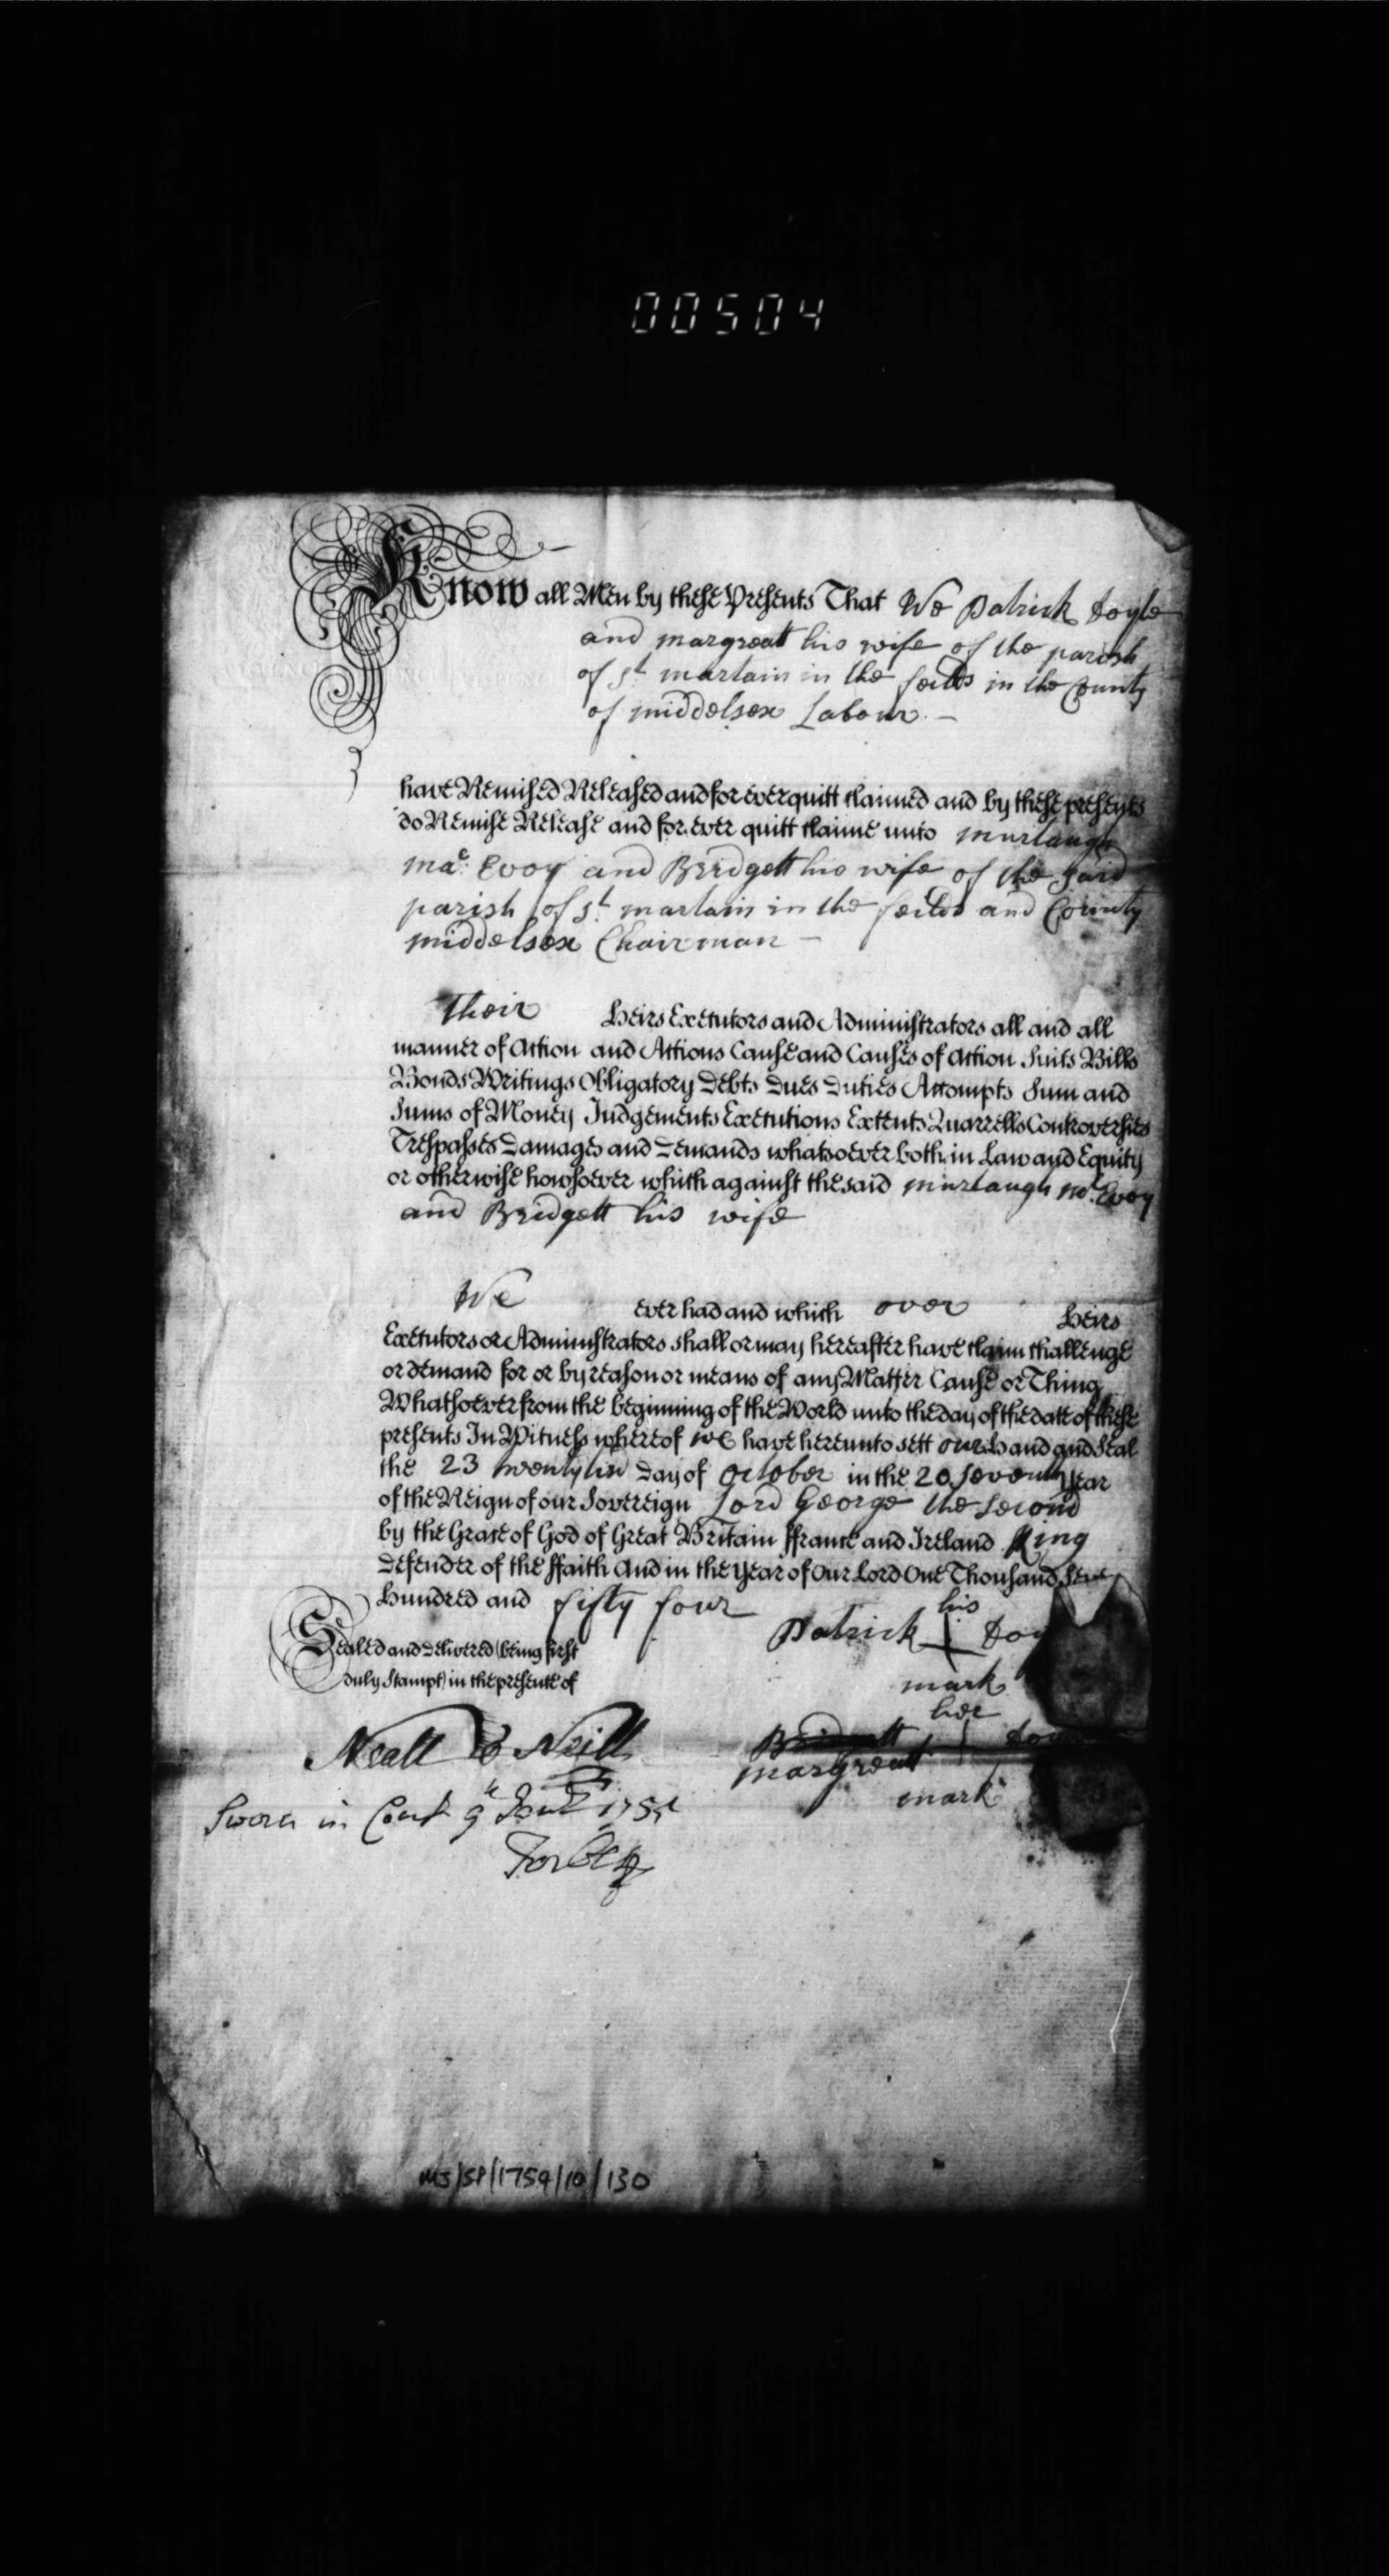 00504
Know all Men by these Presents That We Patrick Doyle
and margreatt his wife of the parish
of st martain in the feilds in the County
of middelsex Labour. —
have Remised Released and for ever quitt claimed and by these presents
do Remise Release and for ever quitt claime unto murtaugh
mac: Evoy and Bridgett his wife of the said
parish of st martain in the feilds and County
middelsex Chairman —
Their Heirs Executors and Administrators all and all
manner of Action and Actions Cause and Causes of Action Suits Bills
Bonds Writings Obligatory Debts Dues Duties Accompts Sum and
Sums of Money Judgements Executions Extents Quarrells Controversies
Trespasses Damages and Demands whatsoever both in Law and Equity
or otherwise howsoever which against the said murtaugh mc. Evoy
and Bridgett his wife
We ever had and which over Heirs
Executors or Administrators shall or may hereafter have claim challenge
or demand for or by reason or means of any Matter Cause or Thing
Whatsoever from the beginning of the World unto the day of the date of these
presents In Witness whereof we have hereunto sett our hand and Seal
the 23 Day of October in the 20 Seventh Year
of the Reign of our Sovereign Lord George the Second
by the Grace of God of Great Britain ffrance and Ireland King
Defender of the ffaith And in the Year of Our Lord One Thousand Seve
Hundred and fifty four
his
Patrick Doy
mark
Sealed and Delivered (being first
duly Stampt) in the presence of
her
Bridgett
margreatt Doy
mark
Neall O Neill
Sworn in Court 9th
MJ/SP/1754/10/130